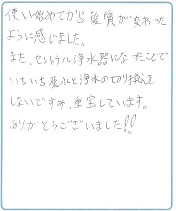 使い始めてから髪質が変わった
ように感じました。
また、セントラル浄水器になったことで
いちいち原水と浄水の切り換えを
しないですみ、重宝しています。
ありがとうございました!!